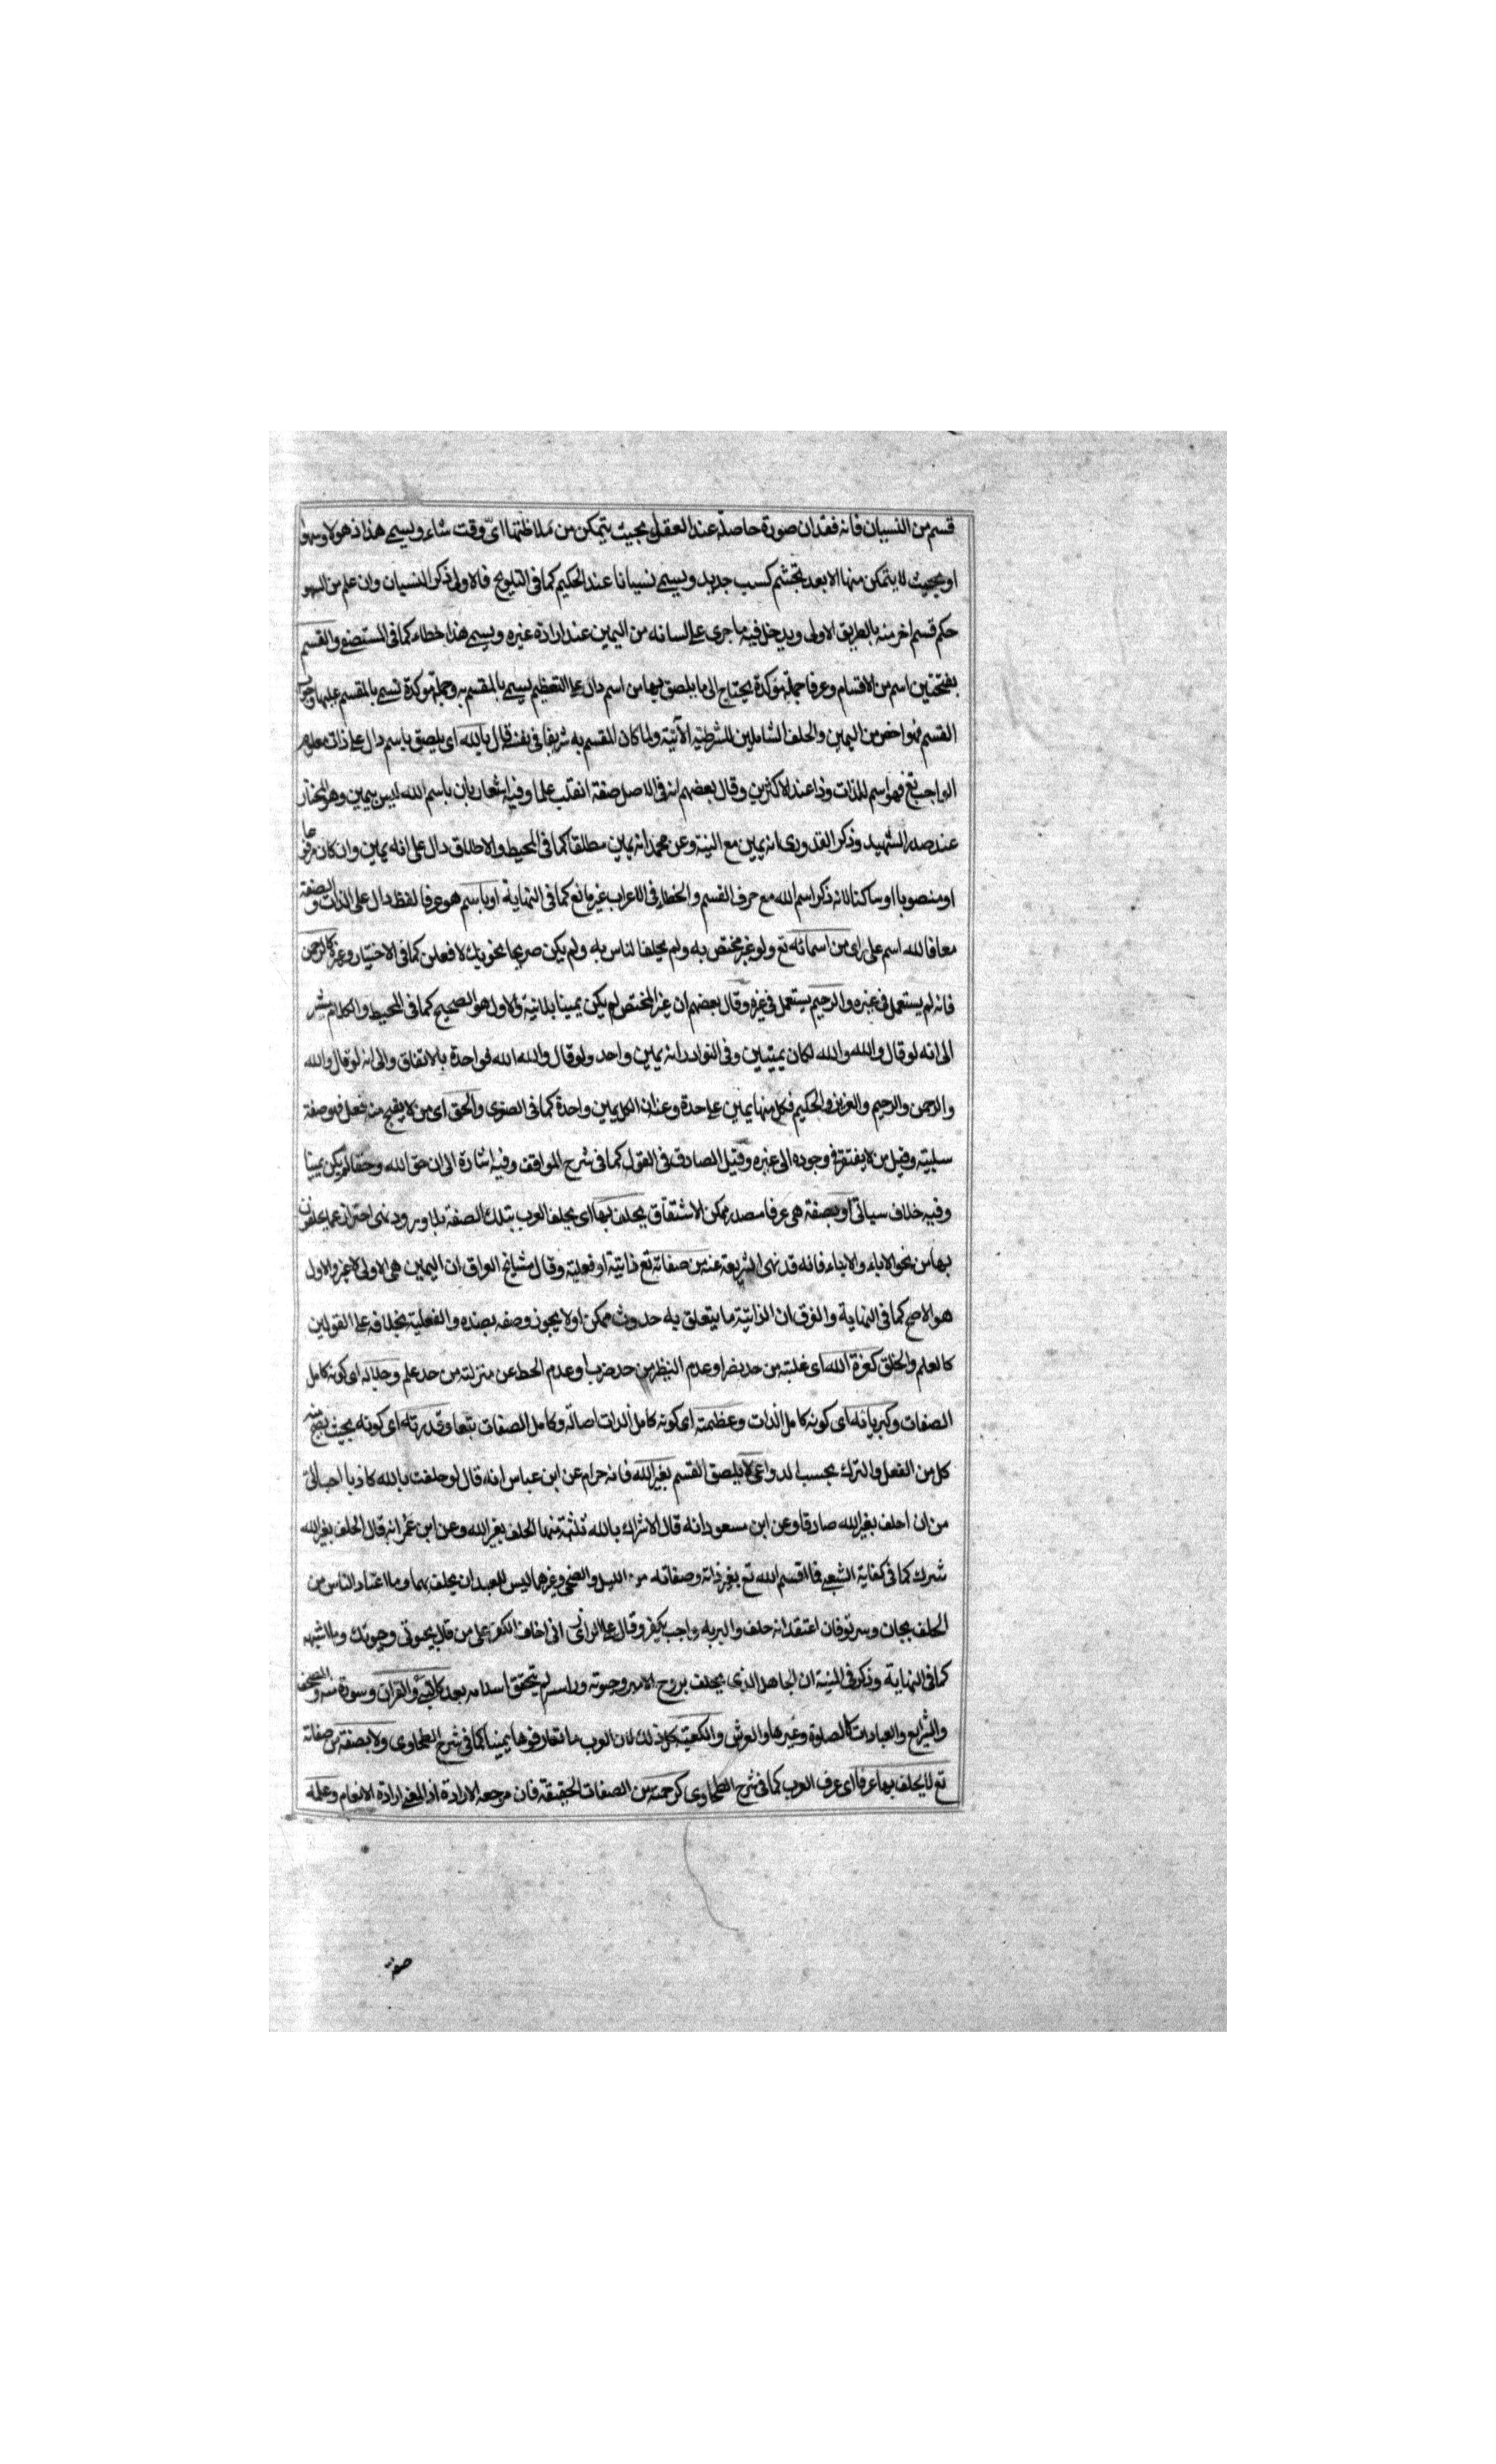 قسم من النسيان فانه فقدان صورة حاصلة عند العقل بحيث يتمكن من ملاحظتها اى وقت شاء ويسمى هذا ذهولا وسهوا
او بحيث لا يتمكن منها الا بعد تجشم كسب جديد ويسمى نسيانا عند الحكيم كما فى التلويح فالاولى ذكر النسيان وان علم من السهو
حكم قسم اخر منه بالطريق الاولى ويدخل فيه ما جرى على لسانه من اليمين عند ارادة غيره ويسمى هذا خطاء كما فى المستصفى والقسم
بفتحتين اسم من الاقسام وعرفا جملة مؤكدة يحتاج الى ما يلصق بها من اسم دال على التعظيم يسمى بالمقسم به وجملة مؤكدة تسمى بالمقسم عليها وجواب
القسم فهو اخص من اليمين والحلف الشاملين للشرطية الآتية ولما كان المقسم به شريفا فى نفسه قال بالله اى يلصق باسم دال على ذات معلوم
الواجب تع فهو اسم للذات وذا عند الاكثرين وقال بعضهم انه فى الاصل صفة انقلب علما وفيه اشعار بان باسم الله ليس بيمين وهو المختار
عند صدر الشهيد وذكر القدورى انه يمين مع النية وعن محمد انه يمين مطلقا كما فى المحيط والاطلاق دال على انه يمين وان كان مرفوعا
او منصوبا او ساكنا لانه ذكر اسم الله مع حرف القسم والخطاء فى الاعراب غير مانع كما فى النهاية او باسم هو عرفا لفظ دال على الذات والصفة
معا فالله اسم على راى من اسمائه تع ولو غير مختص به ولم يحلف الناس به ولم يكن صريحا نحو بك لافعلن كما فى الاختيار وغيره كالرحمن
فانه لم يستعمل فى غيره والرحيم يستعمل فى غيره وقال بعضهم ان غير المختص لم يكن يمينا بلا نية والاول هو الصحيح كما فى المحيط والكلام مشير
الى انه لو قال والله والله لكان يمينين وفى النوادر انه يمين واحد ولو قال والله الله فواحدة بالاتفاق والى انه لو قال والله
والرحمن والرحيم والعزيز والحكيم فكل منها يمين على حدة وعنه ان الكل يمين واحدة كما فى الصغرى والحق اى من لا يقبح منه فعل فهو صفة
سلبية وقيل من لا يفتقر فى وجوده الى غيره وقيل الصادق فى القول كما فى شرح المواقف وفيه اشارة الى ان حق الله وحقا لم يكن يمينا
وفيه خلاف سياتى او بصفة هى عرفا مصدر ممكن الاشتقاق يحلف بها اى يحلف العرب بتلك الصفة بلا ورود نهى احتراز عما يحلفون
بها من نحو الاباء والابناء فانه قد نهى الشريعة عنه من صفاته تع ذاتية او فعلية وقال مشايخ العراق ان اليمين هى الاولى لا غير والاول
هو الاصح كما فى النهاية والفرق ان الذاتية ما يتعلق به حدوث ممكن او لا يجوز وصفه بضده والفعلية بخلافه على القولين
كالعلم والخلق كعزة الله اى غلبته من حد نصر او عدم النظير من حد ضرب او عدم الحط عن منزلته من حد علم وجلاله اى كونه كامل
الصفات وكبريائه اى كونه كامل الذات وعظمته اى كونه كامل الذات اصالة وكامل الصفات تبعا وقدرته اى كونه بحيث يصح منه
كل من الفعل والترك بحسب الدواعى لا يلصق القسم بغير الله فانه حرام عن ابن عباس انه قال لو حلفت بالله كاذبا احب الى
من ان احلف بغير الله صادقا وعن ابن مسعود انه قال الاشراك بالله ثلثة منها الحلف بغير الله وعن ابن عمر انه قال الحلف بغير الله
شرك كما فى كفاية الشعبى فما اقسم الله تع بغير ذاته وصفاته من الليل والضحى وغيرهما ليس للعبد ان يحلف بهما وما اعتاد الناس من
الحلف بجان وسر تو فان اعتقد انه حلف والبر به واجب يكفر وقال على الرازى انى اخاف الكفر على من قال بحيوتى وحيوتك وما اشبهه
كما فى النهاية وذكر فى المنية ان الجاهل الذى يحلف بروح الامير وحيوته وراسه لم يتحقق اسلامه بعد كالنبى والقران وسورة منه والمصحف
والشرايع والعبادات كالصلوة وغيرها والعرش والكعبة كل ذلك لان العرب ما تعارفوها يمينا كما فى شرح الطحاوى ولا بصفة من صفاته
تع لا يحلف بها عرفا اى عرف العرب كما فى شرح الطحاوى كرحمته من الصفات الحقيقة فان مرجعه الارادة اذ المعنى ارادة الانعام وعلمه
صفة